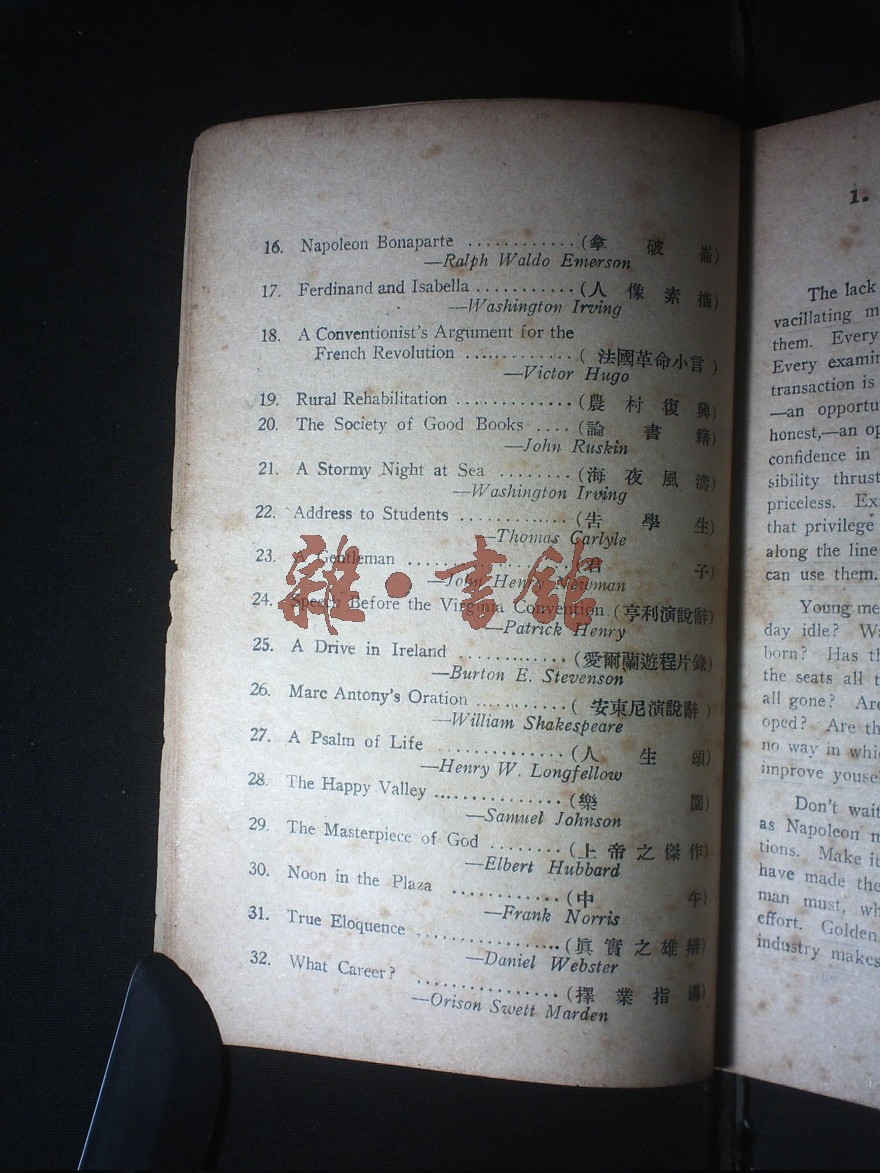 16. Napoleon Bonaparte ............(拿破崙)
—Ralph Waldo Emerson
17. Ferdinand and Isabella ...........(人像素描)
—Washington Irving
18. A Conventionist's Argument for the
French Revolution ............(法國革命小言)
—Victor Hugo
19. Rural Rehabilitation .............(農村復興)
20. The Society of Good Books ....(論書籍)
—John Ruskin
21. A Stormy Night at Sea .........(海夜風濤)
—Washington Irving
22. Address to Students ............(告學生)
—Thomas Carlyle
23. A Gentleman ..................(君子)
—John Henry Newman
24. Speech Before the Virginia Convention.(亨利演說辭)
—Patrick Henry
25. A Drive in Ireland ............(愛爾蘭遊程片錄)
—Burton E. Stevenson
26. Marc Antony's Oration ...........(安東尼演說辭)
—William Shakespeare
27. A Psalm of Life ..............(人生頌)
—Henry W. Longfellow
28. The Happy Valley ...............(樂園)
—Samuel Johnson
29. The Masterpiece of God .........(上帝之傑作)
—Elbert Hubbard
30. Noon in the Plaza ............(中午)
—Frank Norris
31. True Eloquence ................(眞實之雄辯)
—Daniel Webster
32. What Career? ................(擇業指導)
—Orison Swett Marden
雜·書館
1.
The lack
vacillating m
them. Every
Every examin
transaction is
—an opportu
honest,—an op
confidence in
sibility thrust
priceless. Ex
that privilege
along the line
can use them.
Young me
day idle? Wa
born? Has th
the seats all t
all gone? Are
oped? Are th
no way in whic
improve youse
Don't wait
as Napoleon m
tions. Make it
have made the
man must, wh
effort. Golden
industry makes